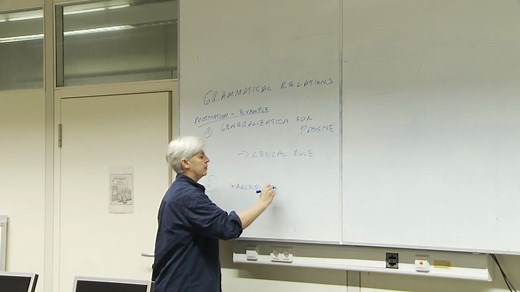 GRAMMATICAL RELATIONS
MOTIVATION - EXAMPLE
① GENERALIZATION FOR
PASSIVE
→ LEXICAL RULE